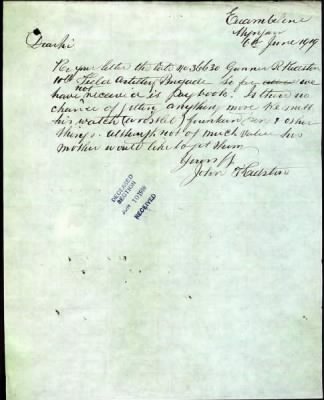 Nyngan
6th June 1919
Dear Sir
Re your letter the late No 36630 Gunner R
10th Field Artillery Brigade so far we
have not received is pay book. Is there no
chance of getting anything more he
his watch fountain pen & other
things. although not of much value his
mother would like to get them
Yours
John
DECEASED
SECTION
JUN 10 1919
RECEIVED